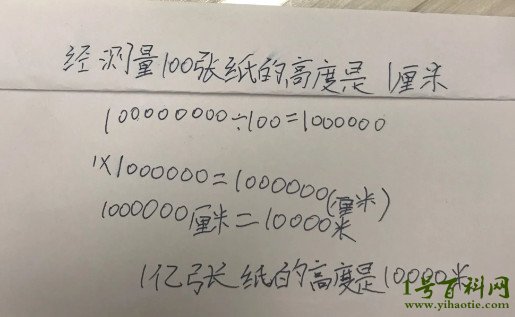 经测量100张纸的高度是1厘米
100000000÷100=1000000
1×1000000=1000000(厘米)
1000000厘米=10000米
1亿张纸的高度是10000米
1号百科网
www.yihaotie.com